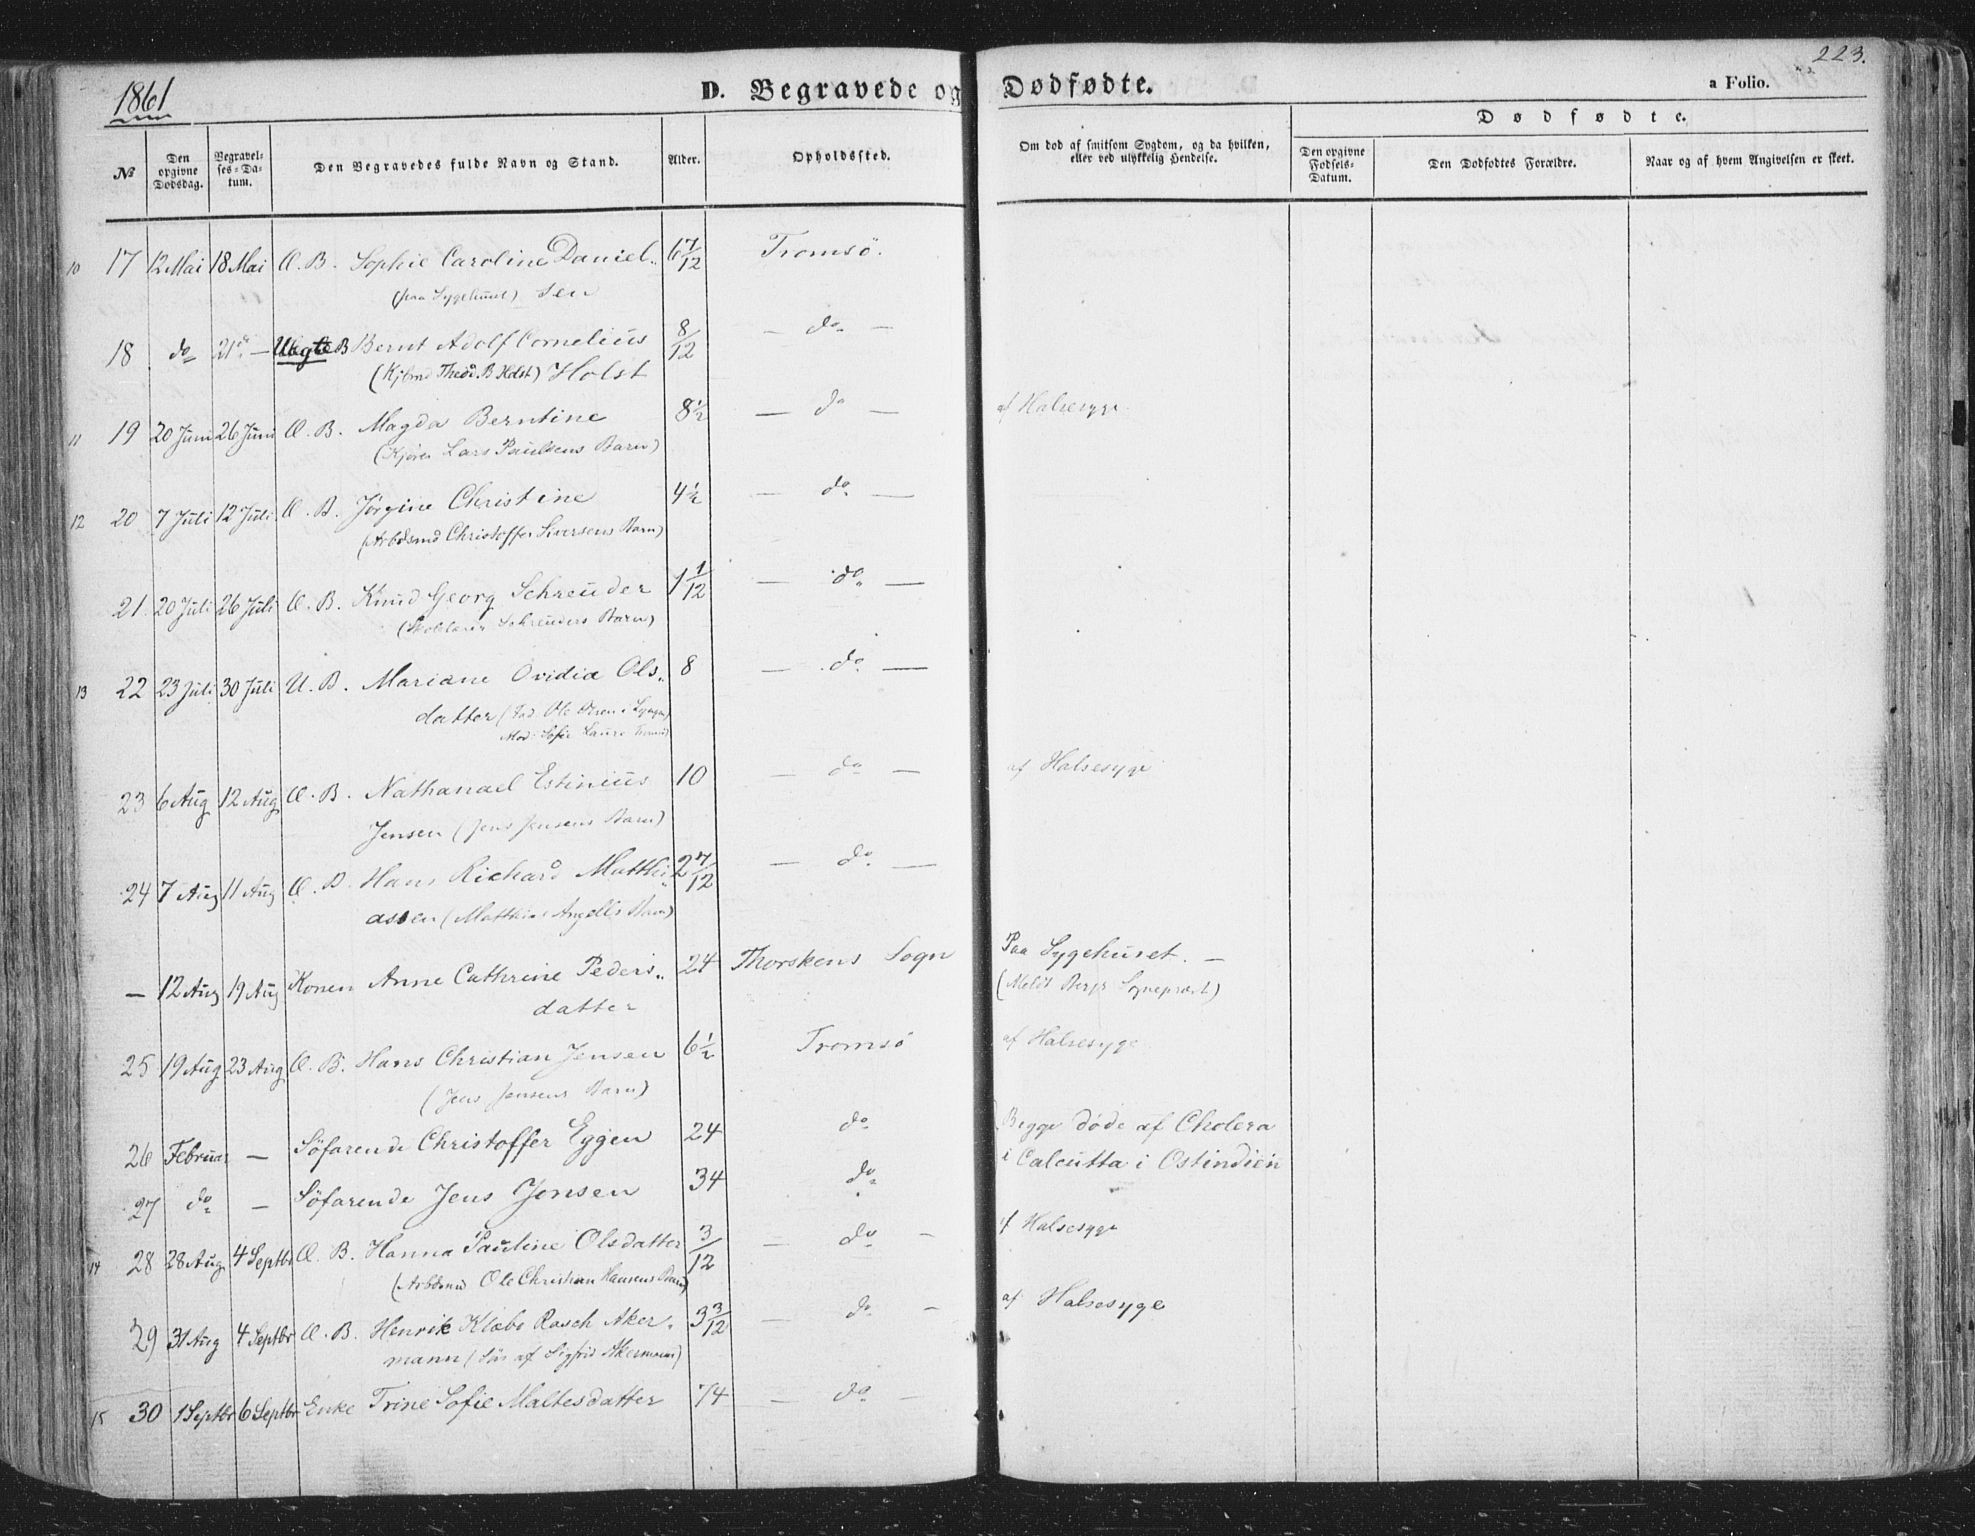 1861
D. Begravede og Dødfødte.
223.
a Folio.
Dødfødte.
№
Den opgivne Dødsdag.
Begravelses-Datum.
Den Begravedes fulde Navn og Stand.
Alder.
Opholdssted.
Om død af smitsom Sygdom, og da hvilken, eller ved ulykkelig Hendelse.
Den opgivne Fødsels-Datum.
Den Dødfødtes Forældre.
Naar og af hvem Angivelsen er skeet.
10 17 12 Mai 18 Mai Æ. B. Sophie Caroline Daniel- 6 7/12 Tromsø.
(paa Sygehuset) sen
18 do 21 do — Uægte B Bernt Adolf Cornelius 8/12 — do —
(Theod. B Holst) Holst
11 19 20 Juni 26 Juni Æ. B. Magda Berntine 8 1/2 — do — af Halsesyge
(Lars Paulsens Barn)
12 20 7 Juli 12 Juli Æ. B. Jørgine Christine 4 1/2 — do —
(Arbdsmd Christoffer Siversens Barn)
21 20 Juli 26 Juli Æ. B. Knud Georg Schreuder 1 1/12 — do —
(Schreuders Barn)
13 22 23 Juli 30 Juli U. B. Mariane Ovidia Ols- 8 — do —
datter (Fad. Ole Lyngen
Mod. Sofie
23 6 Aug 12 Aug Æ. B. Nathanael Estinius 10 — do — af Halsesyge
Jensen (Jens Jensens Barn)
24 7 Aug 11 Aug Æ. B. Hans Richard Matthi- 2 7/12 — do —
assen (Matthias Angells Barn)
— 12 Aug 19 Aug Konen Anne Cathrine Peders- 24 Thorskens Sogn Paa Sygehuset. —
datter (Meldt Sognepræst)
25 19 Aug 23 Aug Æ. B. Hans Christian Jensen 6 1/2 Tromsø af Halsesyge
(Jens Jensens Barn)
26 Februar — Söfarende Christoffer Eggen 24 do Begge døde af Cholera
27 do — Söfarende Jens Jensen 34 do i Calcutta i Ostindien
14 28 28 Aug 4 Septbr Æ. B. Hanna Pauline Olsdatter 3/12 — do — af Halsesyge
(Arbdsmd Ole Christian Hansens Barn)
29 31 Aug 4 Septbr Æ. B. Henrik Klæbo Rasch Aker- 3 3/12 — do — af Halsesyge
mann (Søn af Sigfrid Akermann)
15 30 1 Septbr 6 Septbr Enke Trine Sofie Maltesdatter 74 — do —